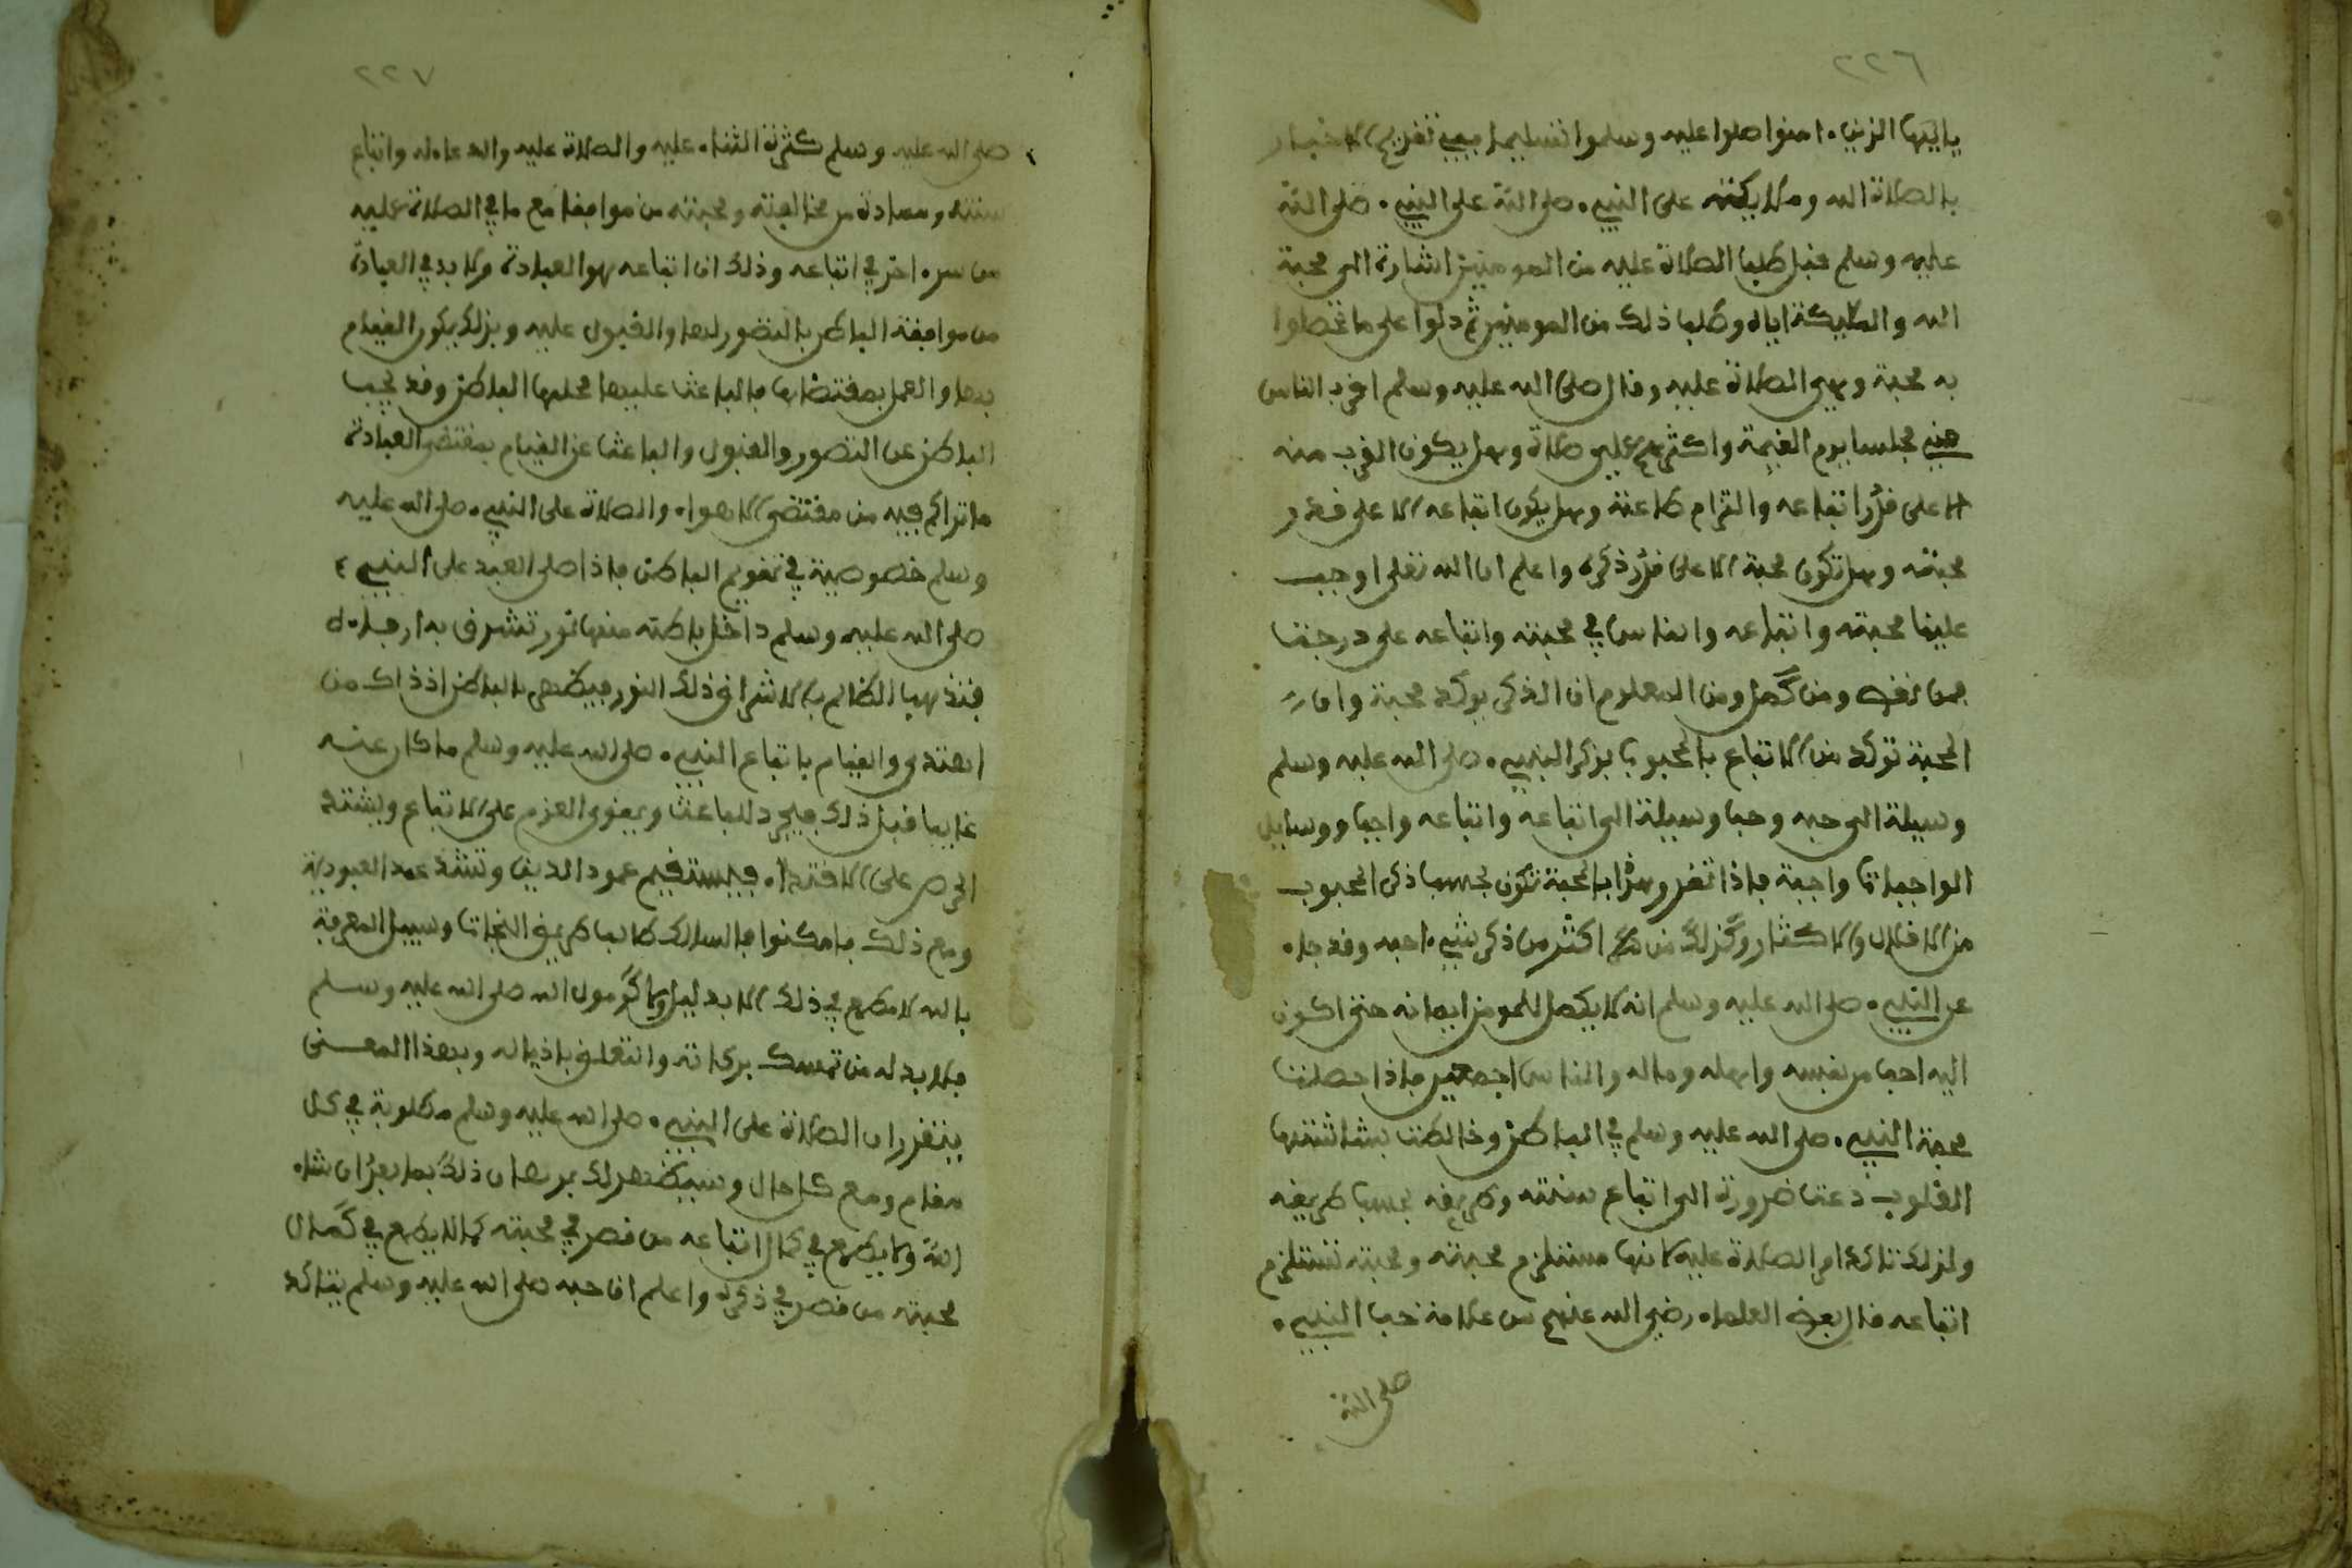 ٢٢٦
يايها الذين ءامنوا صلوا عليه وسلموا تسليما ففي تقديم الاخبار
بالصلاة الله وملايكته على النبيء صلى الله على النبيء صلى الله
عليه وسلم قبل طلب الصلاة عليه من المومنين اشارة الى محبة
الله والمليكة اياه وطلب ذلك من المومنين ثم دلوا على ما
به محبة وهي الصلاة عليه وقال صلى الله عليه وسلم اقرب الناس
مني مجلسا يوم القيمة واكثرهم علي صلاة وهل يكون القرب منه
الا على قدر اتباعه والتزام طاعته وهل يكون اتباعه الا على قدر
محبته وهل تكون محبة الا على قدر ذكره واعلم ان الله تعلى اوجب
علينا محبته واتباعه والناس في محبته واتباعه على درجت
فمن نقص ومن كمل ومن المعلوم ان الذكر يوكد محبة وان
المحبة توكد من الاتباع بالمحبوب فذكر النبيء صلى الله عليه وسلم
وسيلة الى حبه وحبه وسيلة الى اتباعه واتباعه واجب ووسايل
الواجبات واجبة فاذا تقرر هذا فالمحبة تكون بحسب ذكر المحبوب
من الاقلال والاكثار وكذلك من اكثر من ذكر شيء احبه وقد جاء
عن النبيء صلى الله عليه وسلم انه لا يكمل للمومن ايمانه حتى اكون
اليه احب من نفسه واهله وماله والناس اجمعين فاذا حصلت
محبة النبيء صلى الله عليه وسلم في الباطن وخالطت بشاشتها
القلوب دعت ضرورة الى اتباع سنته وطريقه بحسب طريقه
ولذلك تاكد امر الصلاة عليه لانها مستلزم محبته ومحبته تستلزم
اتباعه قال بعض العلماء رضي الله عنهم من علامة حب النبيء
صلى الله
٢٢٧
صلى الله عليه وسلم كثرة الثناء عليه والصلاة عليه والدعاء له واتباع
سنته ومعاداة من خالفته ومحبته من موافقا مع ما في الصلاة عليه
من سر ءاخر في اتباعه وذلك ان اتباعه هو العبادة ولا بد في العبادة
من موافقة الباطن بالتصور لها والقبول عليه وبذلك يكون القيام
بها والعمل بمقتضاها فالباعث عليها محلها الباطن وقد يحجب
الباطن عن التصور والقبول والباعث عن القيام بمقتضى العبادة
ما تراكم فيه من مقتضى الاهواء والصلاة على النبيء صلى الله عليه
وسلم خصوصية في تقويم الباطن فاذا صلى العبد على النبيء
صلى الله عليه وسلم داخل باطنه منها نور تشرق به ارجاءه
فتذهب الظالم بالاشراق ذلك النور فيظهر بالباطن اذ ذاك من
اهتدى والقيام باتباع النبيء صلى الله عليه وسلم ما كان عنه
غايبا قبل ذلك فيجرد للباعث ويقوى العزم على الاتباع ويشتد
الحرص على الاقتداء فيستقيم عمود الدين وتشد عمد العبودية
ومع ذلك فامكنوا فالسالك طالب طريق النجات وسبيل المعرفة
بالله لا مطمع في ذلك الا بدليل ولا كرسول الله صلى الله عليه وسلم
فلا بد له من تمسك بركاته والتعلق باذياله وبهذا المعنى
يتقرر ان الصلاة على النبيء صلى الله عليه وسلم مطلوبة في كل
مقام ومع كل حال وسيظهر لك برهان ذلك بما بعد ان شاء
الله ولا يطمع في كمال اتباعه من قصر في محبته كما لا يطمع في كمال
محبته من قصر في ذكره واعلم ان حبه صلى الله عليه وسلم يتاكد